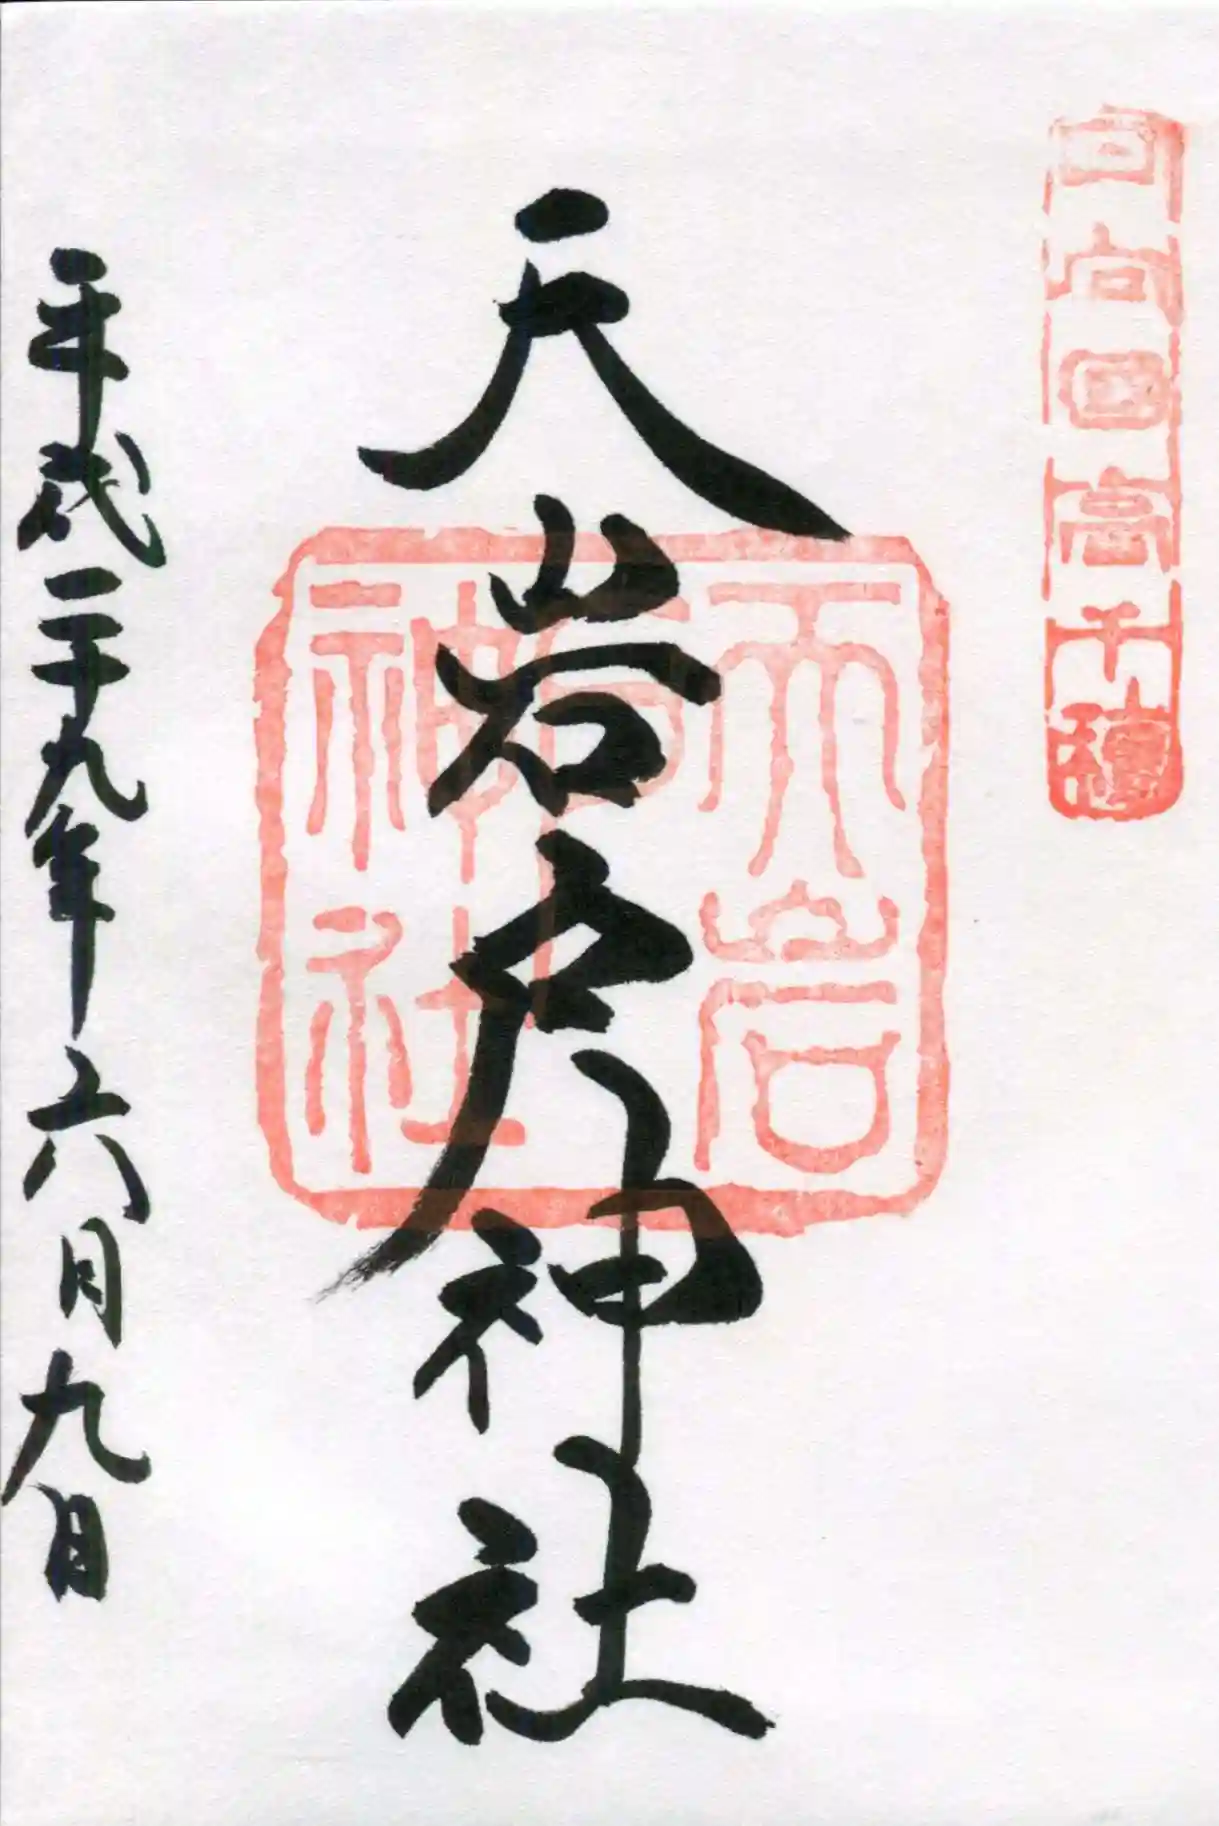 日向国高千穂
天岩戸神社
天岩戸神社
平成二十九年六月九日